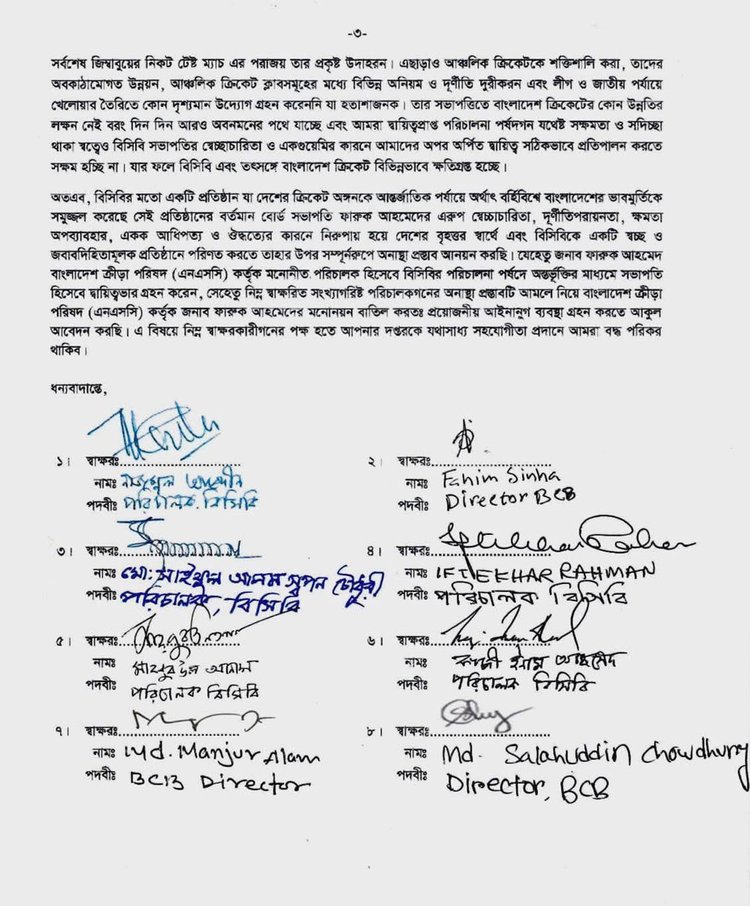 -৩-
সর্বশেষ জিম্বাবুয়ের নিকট টেষ্ট ম্যাচ এর পরাজয় তার প্রকৃষ্ট উদাহরন। এছাড়াও আঞ্চলিক ক্রিকেটকে শক্তিশালি করা, তাদের
অবকাঠামোগত উন্নয়ন, আঞ্চলিক ক্রিকেট ক্লাবসমূহের মধ্যে বিভিন্ন অনিয়ম ও দূর্ণীতি দুরীকরন এবং লীগ ও জাতীয় পর্যায়ে
খেলোয়ার তৈরিতে কোন দৃশ্যমান উদ্যোগ গ্রহন করেননি যা হতাশাজনক। তার সভাপতিত্বে বাংলাদেশ ক্রিকেটের কোন উন্নতির
লক্ষন নেই বরং দিন দিন আরও অবনমনের পথে যাচ্ছে এবং আমরা দ্বায়িত্বপ্রাপ্ত পরিচালনা পর্ষদগন যথেষ্ট সক্ষমতা ও সদিচ্ছা
থাকা স্বত্বেও বিসিবি সভাপতির স্বেচ্ছাচারিতা ও একগুয়েমির কারনে আমাদের অপর অর্পিত দ্বায়িত্ব সঠিকভাবে প্রতিপালন করতে
সক্ষম হচ্ছি না। যার ফলে বিসিবি এবং তৎসঙ্গে বাংলাদেশ ক্রিকেট বিভিন্নভাবে ক্ষতিগ্রস্ত হচ্ছে।
অতএব, বিসিবির মতো একটি প্রতিষ্ঠান যা দেশের ক্রিকেট অঙ্গনকে আন্তর্জাতিক পর্যায়ে অর্থাৎ বর্হিবিশ্বে বাংলাদেশের ভাবমূর্তিকে
সমুজ্জল করেছে সেই প্রতিষ্ঠানের বর্তমান বোর্ড সভাপতি ফারুক আহমেদের এরুপ স্বেচ্ছাচারিতা, দূর্ণীতিপরায়নতা, ক্ষমতা
অপব্যাবহার, একক আধিপত্য ও ঔদ্ধত্যের কারনে নিরুপায় হয়ে দেশের বৃহত্তর স্বার্থে এবং বিসিবিকে একটি স্বচ্ছ ও
জবাবদিহিতামূলক প্রতিষ্ঠানে পরিণত করতে তাহার উপর সম্পূর্নরুপে অনাস্থা প্রস্তাব আনয়ন করছি। যেহেতু জনাব ফারুক আহমেদ
বাংলাদেশ ক্রীড়া পরিষদ (এনএসসি) কর্তৃক মনোনীত পরিচালক হিসেবে বিসিবির পরিচালনা পর্ষদে অন্তর্ভুক্তির মাধ্যমে সভাপতি
হিসেবে দ্বায়িত্বভার গ্রহন করেন, সেহেতু নিম্ন স্বাক্ষরিত সংখ্যাগরিষ্ট পরিচালকগনের অনাস্থা প্রস্তাবটি আমলে নিয়ে বাংলাদেশ ক্রীড়া
পরিষদ (এনএসসি) কর্তৃক জনাব ফারুক আহমেদের মনোনয়ন বাতিল করতঃ প্রয়োজনীয় আইনানুগ ব্যবস্থা গ্রহন করতে আকুল
আবেদন করছি। এ বিষয়ে নিম্ন স্বাক্ষরকারীগনের পক্ষ হতে আপনার দপ্তরকে যথাসাধ্য সহযোগীতা প্রদানে আমরা বদ্ধ পরিকর
থাকিব।
ধন্যবাদান্তে,
১। স্বাক্ষরঃ
নামঃ নাজমুল আবেদীন
পদবীঃ পরিচালক বিসিবি
২। স্বাক্ষরঃ
নামঃ Fahim Sinha
পদবীঃ Director BCB
৩। স্বাক্ষরঃ
নামঃ মোঃ সাইফুল আলম স্বপন চৌধুরী
পদবীঃ পরিচালক, বিসিবি
৪। স্বাক্ষরঃ Iftekhar Rahman
নামঃ IFTEKHAR RAHMAN
পদবীঃ পরিচালক বিসিবি
৫। স্বাক্ষরঃ
নামঃ মাহবুব উল আলম
পদবীঃ পরিচালক বিসিবি
৬। স্বাক্ষরঃ
নামঃ কাজী ইনাম আহমেদ
পদবীঃ পরিচালক বিসিবি
৭। স্বাক্ষরঃ
নামঃ Md. Manjur Alam
পদবীঃ BCB Director
৮। স্বাক্ষরঃ
নামঃ Md. Salahuddin Chowdhury
পদবীঃ Director, BCB